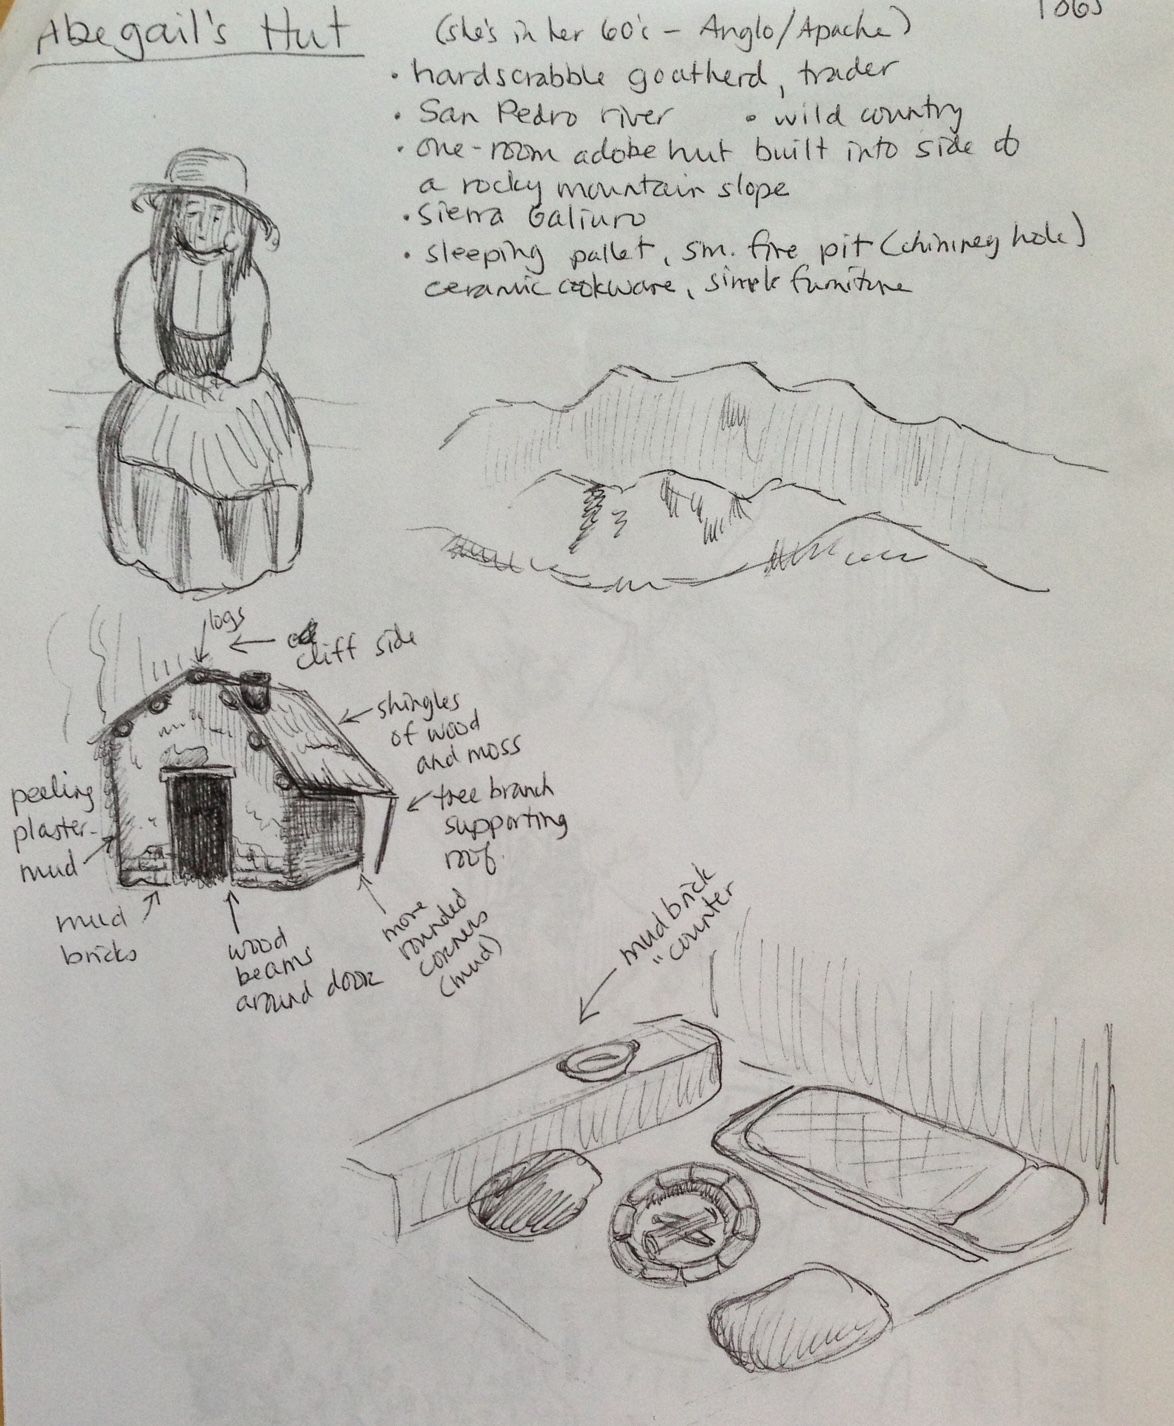 Abegail's Hut
(she's in her 60's - Anglo/Apache)
• hardscrabble goatherd, trader
• San Pedro river • wild country
• one-room adobe hut built into side of
a rocky mountain slope
• Sierra Galiuro
• sleeping pallet, sm. fire pit (chimney hole)
ceramic cookware, simple furniture
logs
cliff side
shingles
of wood
and moss
tree branch
supporting
roof
peeling
plaster-
mud
mud
bricks
wood
beams
around door
more
rounded
corners
(mud)
mudbrick
"counter